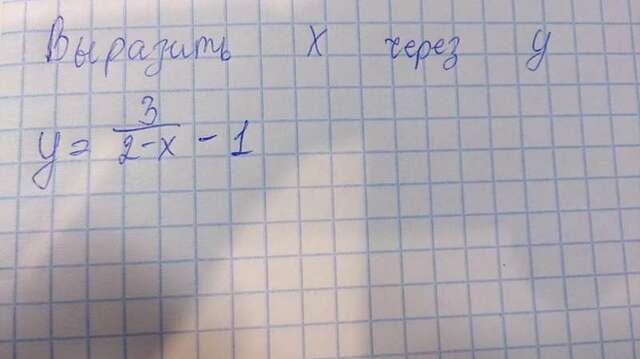 Выразить x через y
y = 3/(2-x) - 1